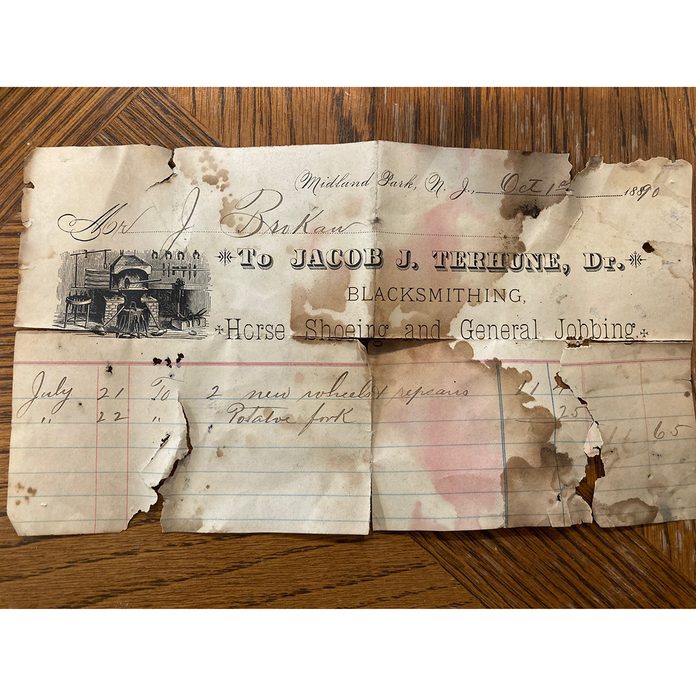 Midland Park, N. J., Oct 1st 1890
Mr J Brokaw
To JACOB J. TERHUNE, Dr.
BLACKSMITHING,
Horse Shoeing and General Jobbing.
July 21 To 2 new wheels & repairs 11
" 22 " Potatoe fork 25
11 65